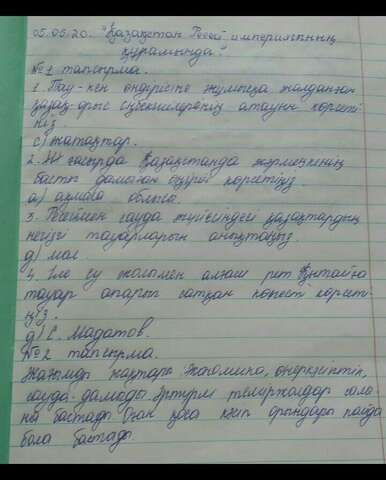 05.05.20. "Қазақстан Ресей империясының
құрамында".
№1 тапсырма.
1. Тау-кен өндірісіне жұмысқа жалданған
қазақ-орыс еңбекшілерінің атауын көрсеті
ңіз
с) жатақтар.
2. ғасырда Қазақстанда жәрмеңкенің
басты дамыған өңірін көрсетіңіз
а) ақмола облысы.
3. Ресеймен сауда жүйесіндегі қазақтардың
негізгі тауарларын анықтаңыз
д) мал.
4. Іле су жолымен алғаш рет Қытайға
тауар апарып сатқан көпесті көрсеті
ңіз.
д) С. Мадатов.
№2 тапсырма.
Жағымды жақтары экономика, өнеркәсіптік,
сауда дамыды. Әртүрлі теміржолдар сала
на бастады Оған қоса кәсіп орындары пайда
бола бастады